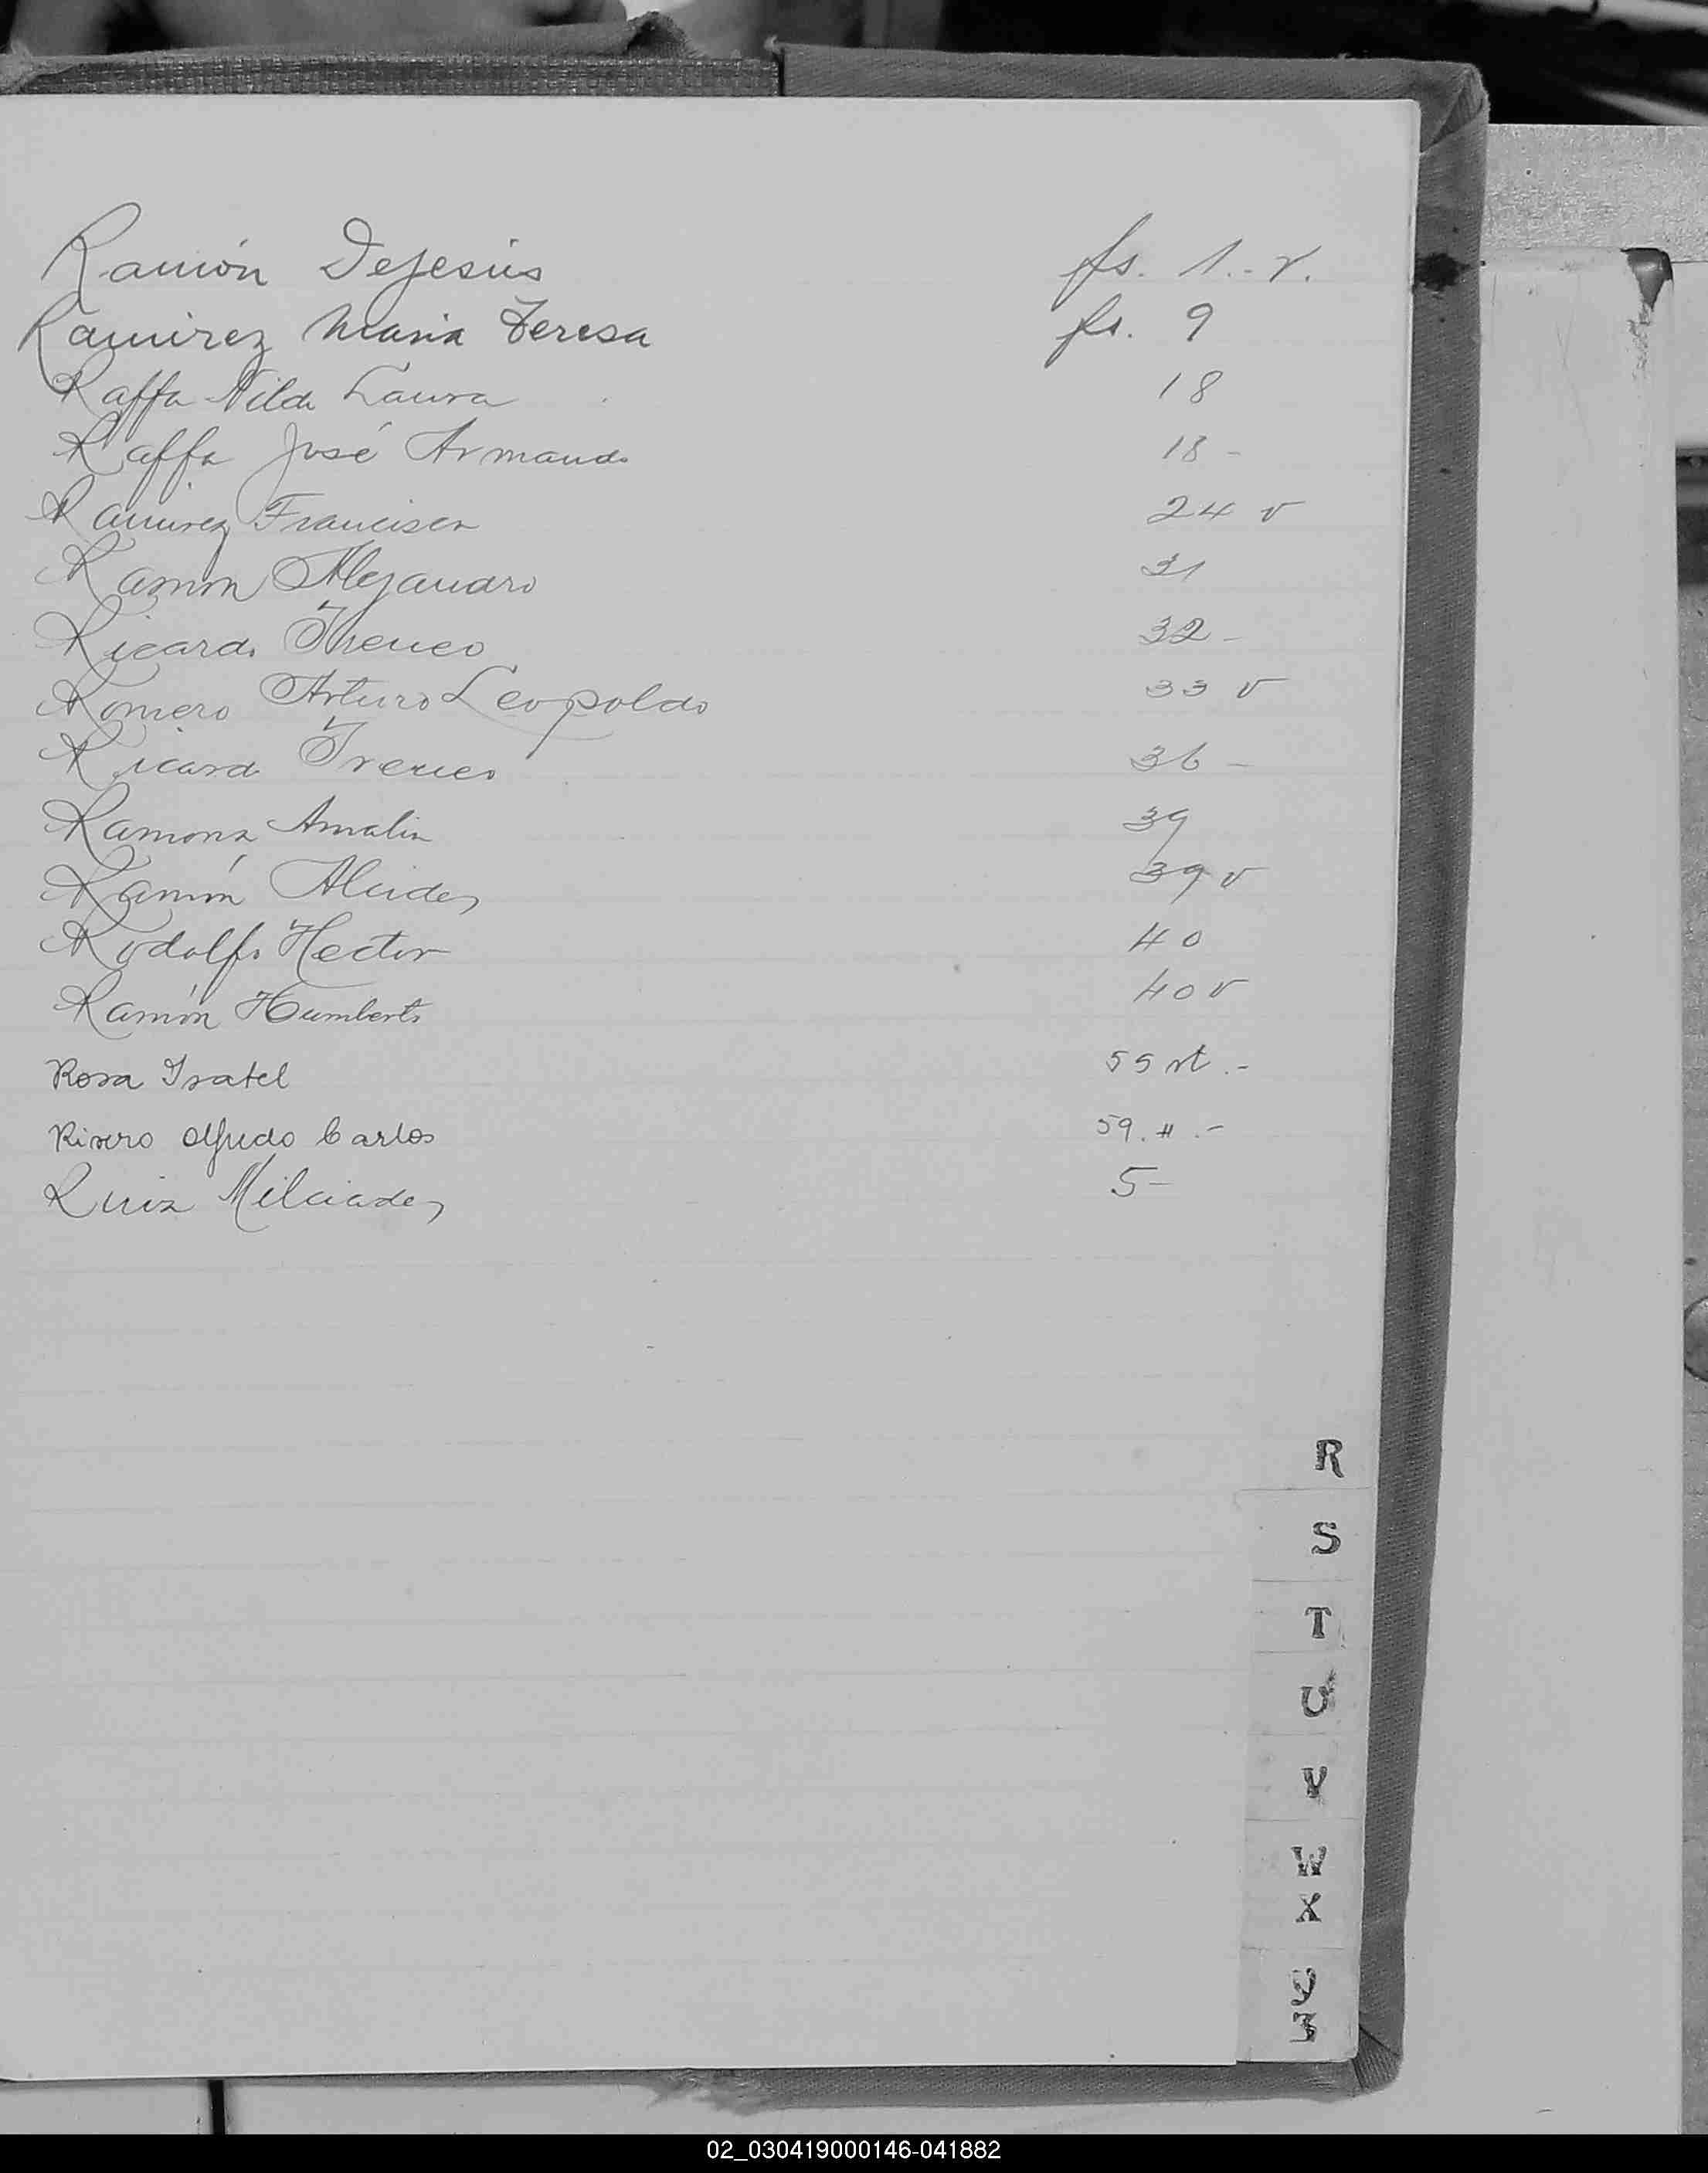 Ramón Dejesús fs. 1.-v.
Ramirez Maria Teresa fs. 9
Raffa Nilda Laura 18
Raffa José Armando 18-
Ramirez Francisca 24 v
Ramon Alejandro 31
Ricardo Ireneo 32-
Romero Arturo Leopoldo 33 v
Ricardo Ireneo 36-
Ramona Amalia 39
Ramón Alcides 39 v
Rodolfo Hector 40
Ramón Humberto 40 v
Rosa Isabel 55 vt.-
Rivero Alfredo Carlos 59.
Ruiz Milciades 5-
R
S
T
U
V
W
X
Y
Z
02_030419000146-041882